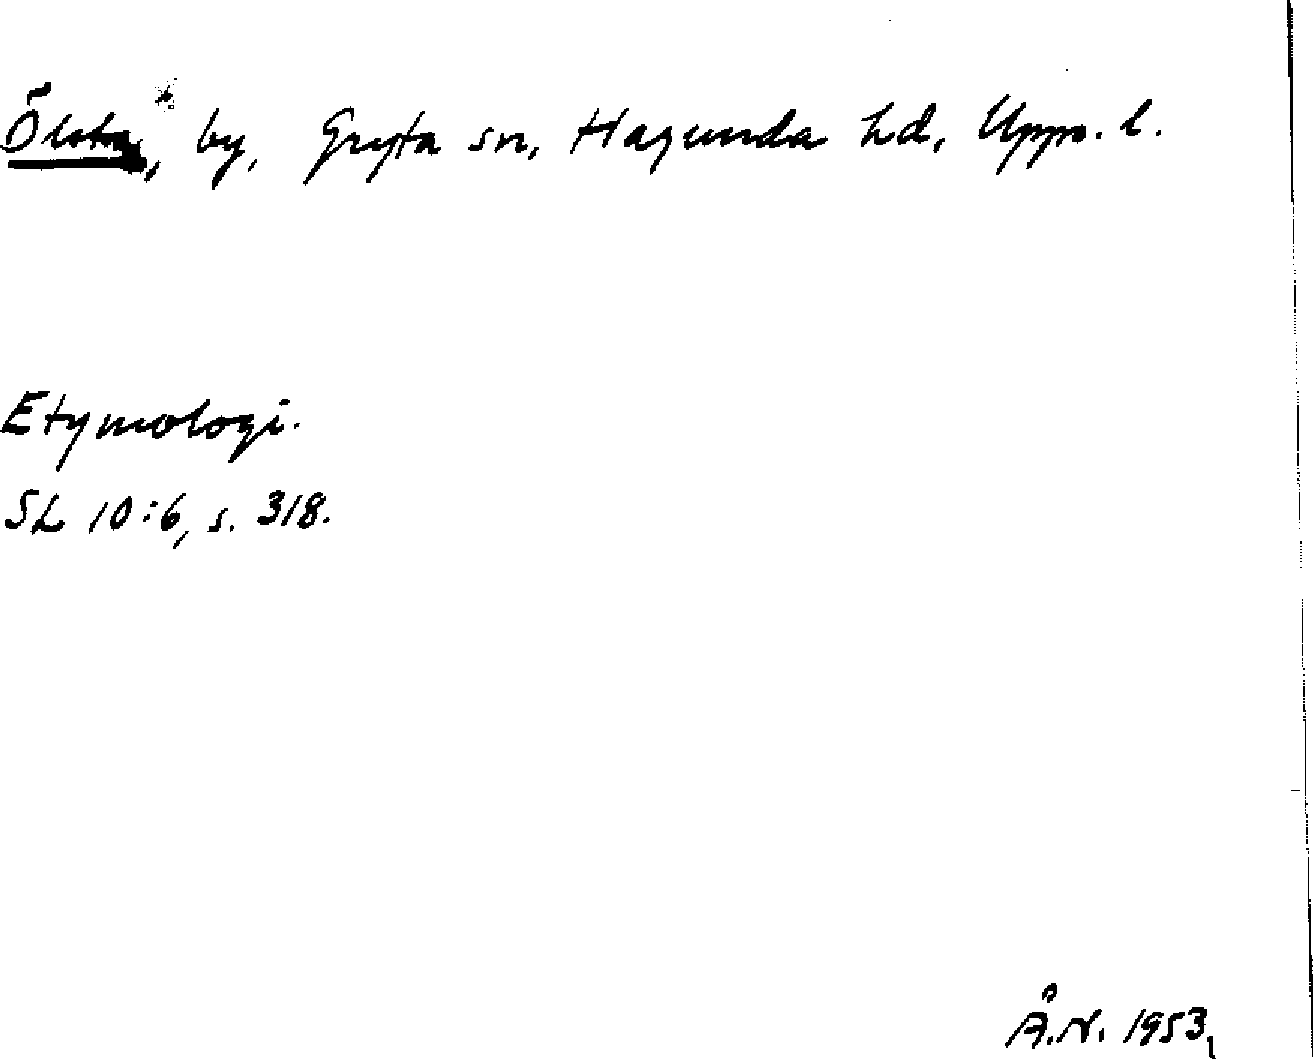 Ölsta, by, Gryta sn, Hagunda hd, Upps. l.
Etymologi.
SL 10:6, s. 318.
Å.N. 1953